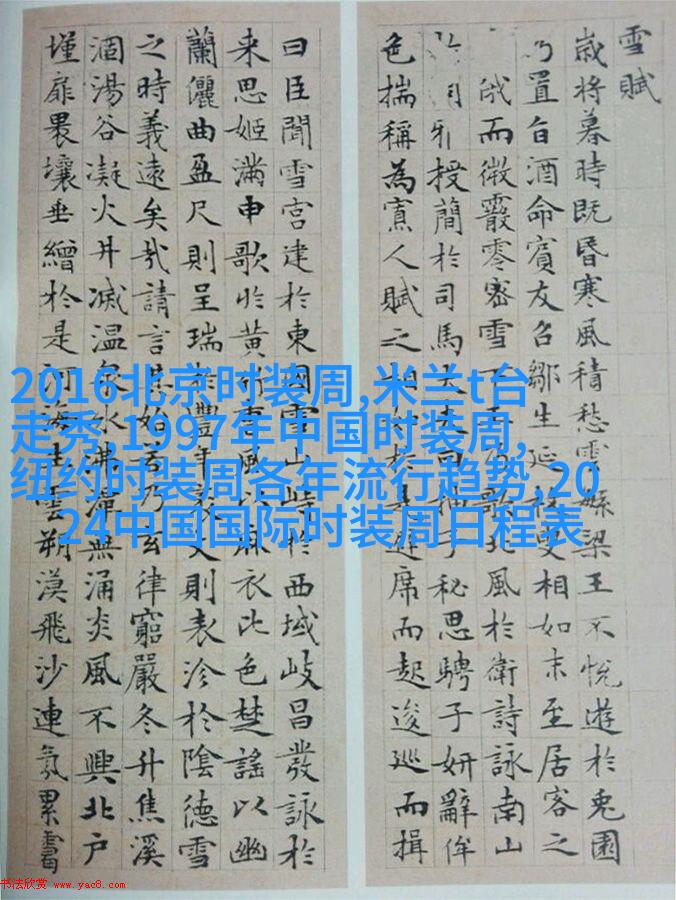 雪賦
歲將暮時既昏寒風積愁雲繇梁王不悅遊於兔園
乃置旨酒命賓友召鄒生延枚叟相如末至居客之
俄而微霰零密雪下王乃歌北風於衛詩詠南山
授簡於司馬大夫曰抽子秘思騁子妍辭侔
色揣稱為寡人賦之相如於是避席而起逡巡而揖
曰臣聞雪宮建於東國雪山峙於西域岐昌發詠於
来思姬滿申歌於黃竹曹風以麻衣比色楚謠以幽
蘭儷曲盈尺則呈瑞於豐年袤丈則表沴於陰德雪
之時義遠矣哉請言其始若乃玄律窮嚴冬升焦溪
涸湯谷凝火井滅温泉冰沸潭無涌炎風不興北戶
墐扉裸壤垂繒於是河海生雲朔漠飛沙連氛累靄
2016北京时装周,米兰t台
走秀,1997年中国时装周,
纽约时装周各年流行趋势,20
24中国国际时装周日程表
书法欣赏 www.yac8.com